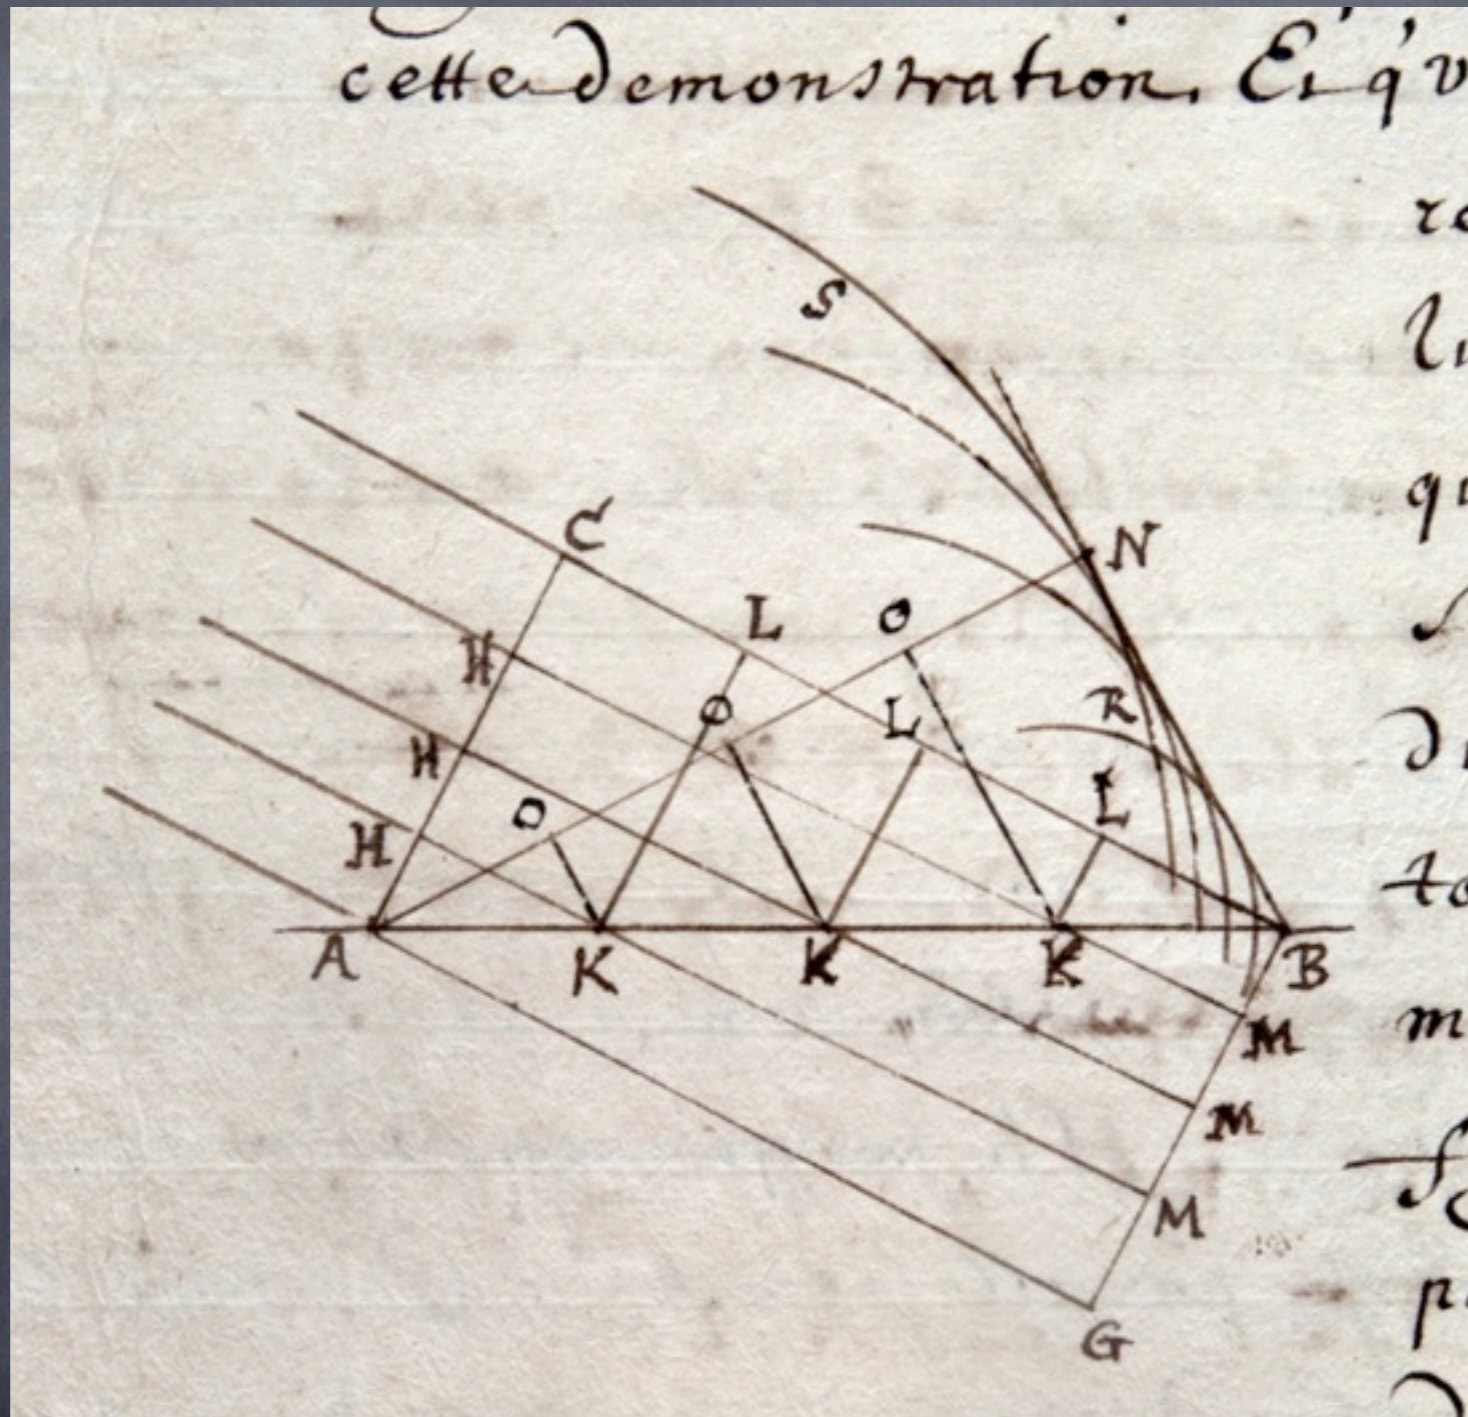 cette demonstration. Et q'v
re
S
qu
C
N
L
O
H
O
L
R
H
O
L
H
to
A
K
K
K
B
m
M
M
M
G